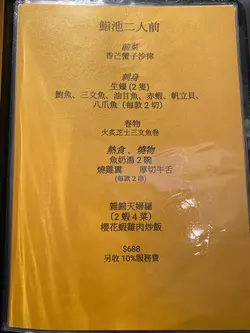 鮨池二人前
前菜
香芒蟹子沙律
刺身
生蠔(2隻)
鮑魚、三文魚、油甘魚、赤蝦、帆立貝、
八爪魚(每款2切)
卷物
火炙芝士三文魚卷
熱食、燒物
魚奶湯2碗
燒雞翼 厚切牛舌
(每款2串)
雜錦天婦羅
(2蝦4菜)
櫻花蝦雞肉炒飯
$688
另收10%服務費